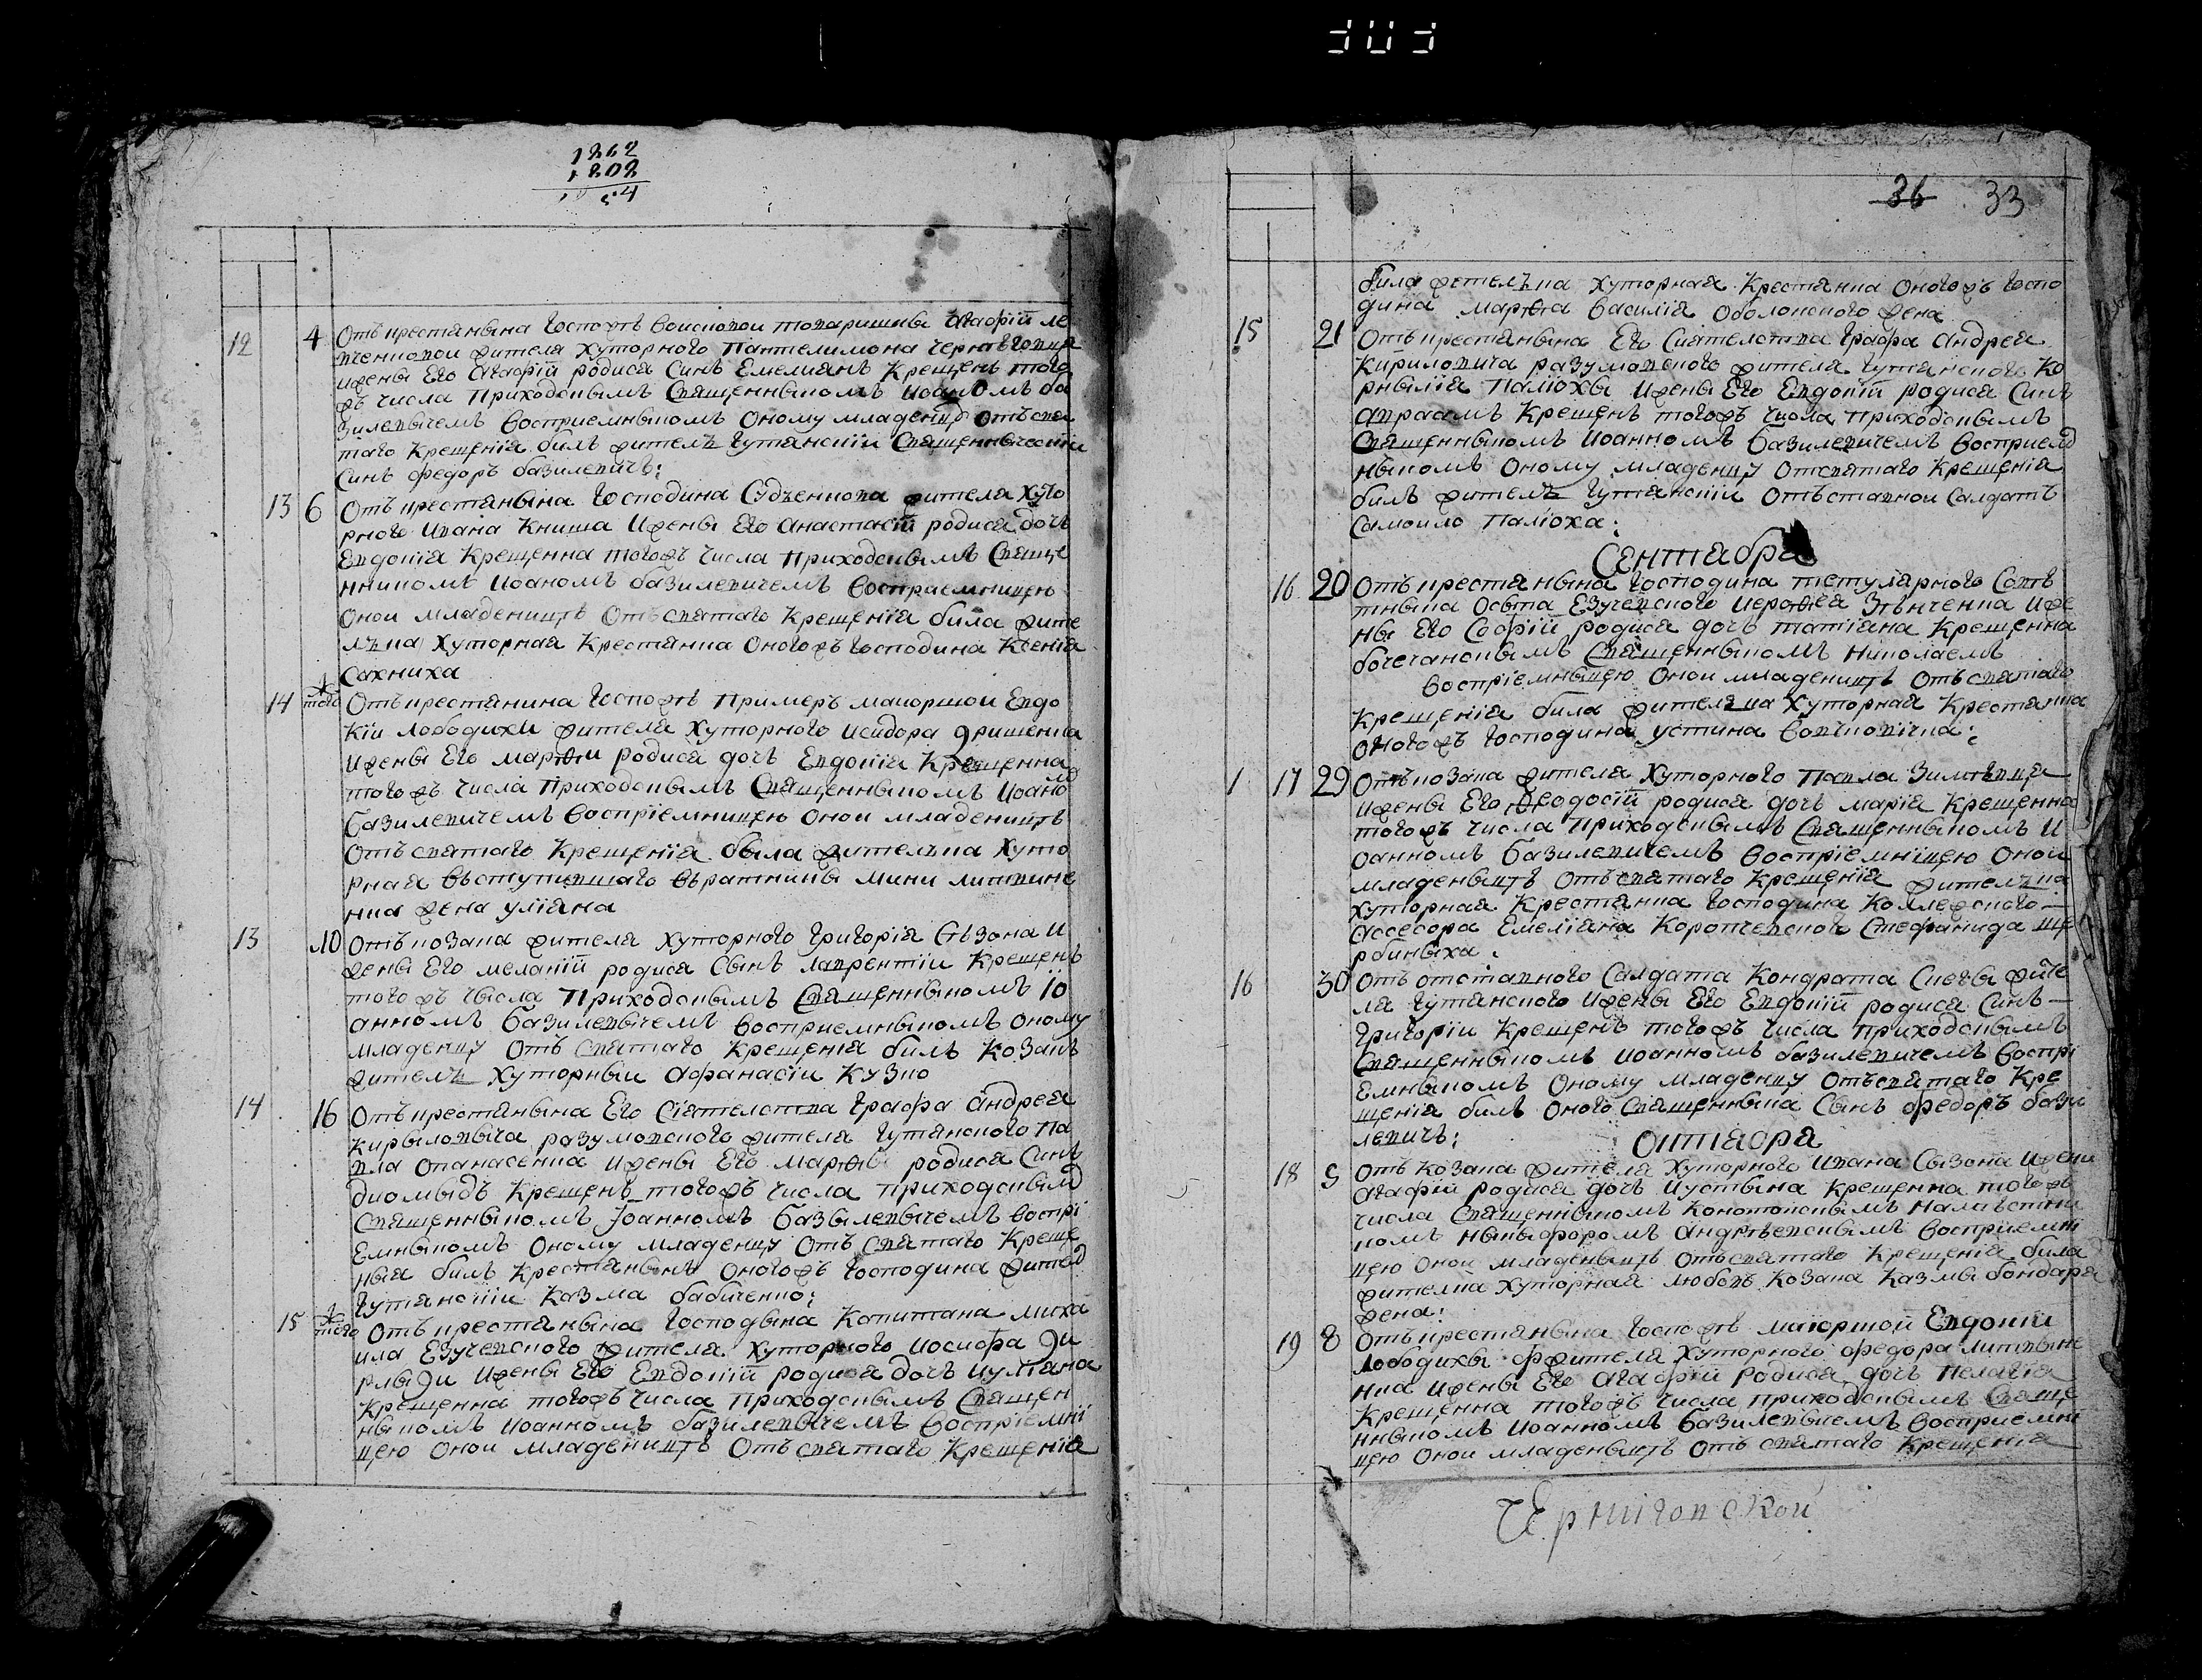 303
1262
1202
12 4 Отъ крестянына Госпожѣ воисковои товаришкы Агафіи Ле
вченковои жителя хуторного Пантелимона Чернѣговца
ижены Его Агафіи родися Синъ Емелианъ Крещенъ того
жъ числа Приходскымъ Священныкомъ Иоаномъ ба
зилевычемъ восприемныкомъ Оному младенцу отъ свя
таго Крещенія билъ жителъ Гутянскіи Священныческіи
Синъ федоръ базилевичъ:
13 6 Отъ крестянына Господина Судъенкова жителя хуто
рного Ивана Книша Ижены Его Анастасіи родися дочъ
Евдокіа Крещенна тогожъ числа Приходскымъ Свяще
нникомъ Иоаномъ базилевичемъ восприемницею
Онои младеницѣ Отъ святаго Крещеніа била жите
лъка хуторная Крестянка Оногожъ Господина Ксеніа
Сахниха
14 того Отъ крестянина Госпожѣ Примеръ маиоршои Евдо
Кіи лободихи жителя хуторного Исидора
Ижены Его марѳи родися дочъ Евдокіа Крещенна
тогожъ числа Приходскымъ Священныкомъ Иоаномъ
базилевичемъ воспріемницею Онои младеницѣ
Отъ святаго Крещеніа была жителъка хуто
рная вступившаго въратники мини литвине
нка жена уліана
13 10 Отъ козака жителя хуторного Григоріа Сызона И
жены Его меланіи родися Сынъ лаврентіи Крещенъ
тогожъ чысла Приходскымъ Священныкомъ Іо
анномъ базилевычемъ восприемныкомъ оному
младенцу Отъ Святаго Крещеніа билъ Козакъ
жителъ хуторный Афанасіи Кузко
14 16 Отъ крестянына Его Сіятелства Графа андрея
Кирыловыча разумовского жителя Гутянского Па
вла опанасенка Ижены Его Марѳы родися Синъ
диомыдъ Крещенъ тогожъ числа приходскымъ
Священныкомъ Іоанномъ базылевычемъ воспрі
Емныкомъ Оному младенцу Отъ Святаго Креще
ныя билъ Крестянынъ Оногожъ Господина жителъ
Гутянскіи Казма бабиченко:
15 того Отъ крестянына Господына Капитана миха
ила Езучевского жителя хуторного Иосифа
Ижены Его Евдокіи родися дочъ Иуліана
Крещенна тогожъ числа Приходскымъ Священ
ныкомъ Иоанномъ базилевычемъ воспріемні
цею Онои младеницѣ Отъ святаго Крещеніа
36 33
била жителъка хуторная Крестянка Оногожъ Госпо
дина марѳа василіа Оболонского жена
15 21 Отъ крестянына Его Сиятелства Графа андрея
Кириловича разумовского жителя Гутянского Ко
рныліа Паліохы Ижены Его Евдокіи родися Синъ
аврамъ Крещенъ тогожъ числа приходскымъ
Священныкомъ Иоанномъ базилевичемъ восприем
ныкомъ Оному младенцу Отсвятаго Крещеніа
билъ жителъ Гутянскіи Отъставнои Салдатъ
Самоило Паліоха:
Сентабра
16 20 Отъ крестянына Господина тетулярного Совѣ
тныка Осыпа Езучевского Иероѳея Зѣнченка Иже
ны Его Софіи родися дочъ татіана Крещенна
бочечанскымъ Священныкомъ Николаемъ
воспріемныцею Онои младеницѣ Отъ святаго
Крещеніа била жителка хуторная Крестянка
Оногожъ Господина устина
1 17 29 Отъ козака жителя хуторного Павла Зимовца
Ижены Его Ѳеодосіи родися дочъ маріа Крещенна
тогожъ числа Приходскымъ Священныкомъ И
оанномъ базилевичемъ воспріемніцею Онои
младеныцѣ Отъ святаго Крещеніа жителъка
хуторная Крестянка Господина Коллежского
Ассесора Емеліана Коропчевского Стефанида ще
рбиныха:
16 30 Отъ отставного Салдата Кондрата Снегы жите
ля Гутянского Ижены Его Евдокіи родися Синъ
Григоріи Крещенъ тогожъ числа приходскымъ
Священныкомъ Иоанномъ базилевичемъ воспрі
Емныкомъ Оному младенцу Отъ святаго Кре
щеніа билъ Оного Священныка Сынъ федоръ бази
левичъ:
Октабра
18 5 Отъ Козака жителя хуторного Ивана Сызона Ижены
Агафіи родися дочъ Иустына Крещенна тогожъ
числа Священныкомъ Конотопскымъ Намѣстни
комъ Ныкыфоромъ андрѣевскымъ восприемні
цею Онои младеныцѣ Отъ святаго Крещеніа била
жителка хуторная любовъ козака Казмы бондаря
жена:
19 8 Отъ крестянына Госпожѣ маіоршои Евдокіи
лободихы жителя хуторного федора литвине
нка Ижены Его Агафіи родися дочъ Пелагіа
Крещенна тогожъ числа приходскымъ Свяще
нныкомъ Иоанномъ базилевычемъ восприемні
цею Онои младеныцѣ Отъ святаго Крещеніа
Черниговской